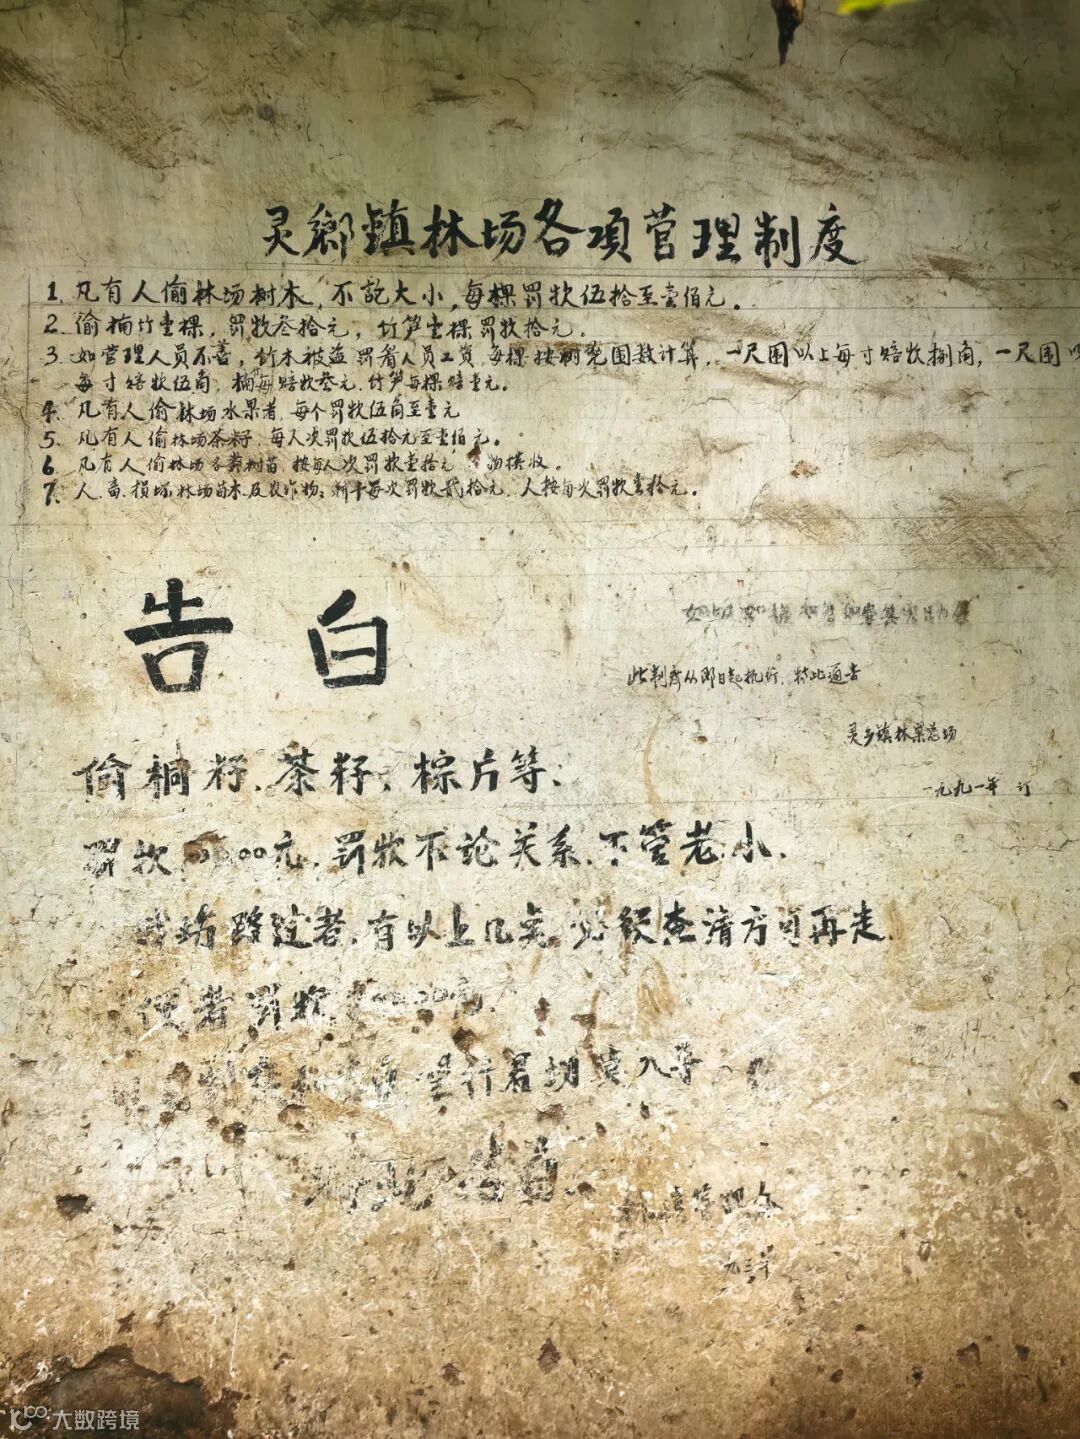 灵鄉鎮林场各項管理制度
1. 凡有人偷林场树木，不訖大小，每棵罚牧伍拾至壹佰元。
2. 偷楠竹壹棵，罚牧叁拾元，竹笋壹棵罚牧拾元。
3. 如管理人员不善，竹木被盗罚看人员工资，每棵按树兜围数计算，一尺围以上每寸赔牧捌角，一尺围
每寸赔牧伍角，楠每赔牧叁元，竹笋每棵赔壹元。
4. 凡有人偷林场水果者，每个罚牧伍角至壹元
5. 凡有人偷林场茶籽，每人次罚牧伍拾元至壹佰元。
6. 凡有人偷林场各类树苗，按每人次罚牧壹拾元 物
7. 人、畜、损坏林场苗木及农作物，每次罚牧贰拾元，人按每次罚牧壹拾元。
告白
此制度从即日起执行，特此通告
灵乡镇林果总场
一九九一年 订
偷桐籽、茶籽、棕片等、
罚牧 00元，罚牧不论关系，不管老、小、
路过者，有以上几点，必须查清方可再走
者罚牧
望行君切莫入手
告白
管理会
九三年
大数跨境